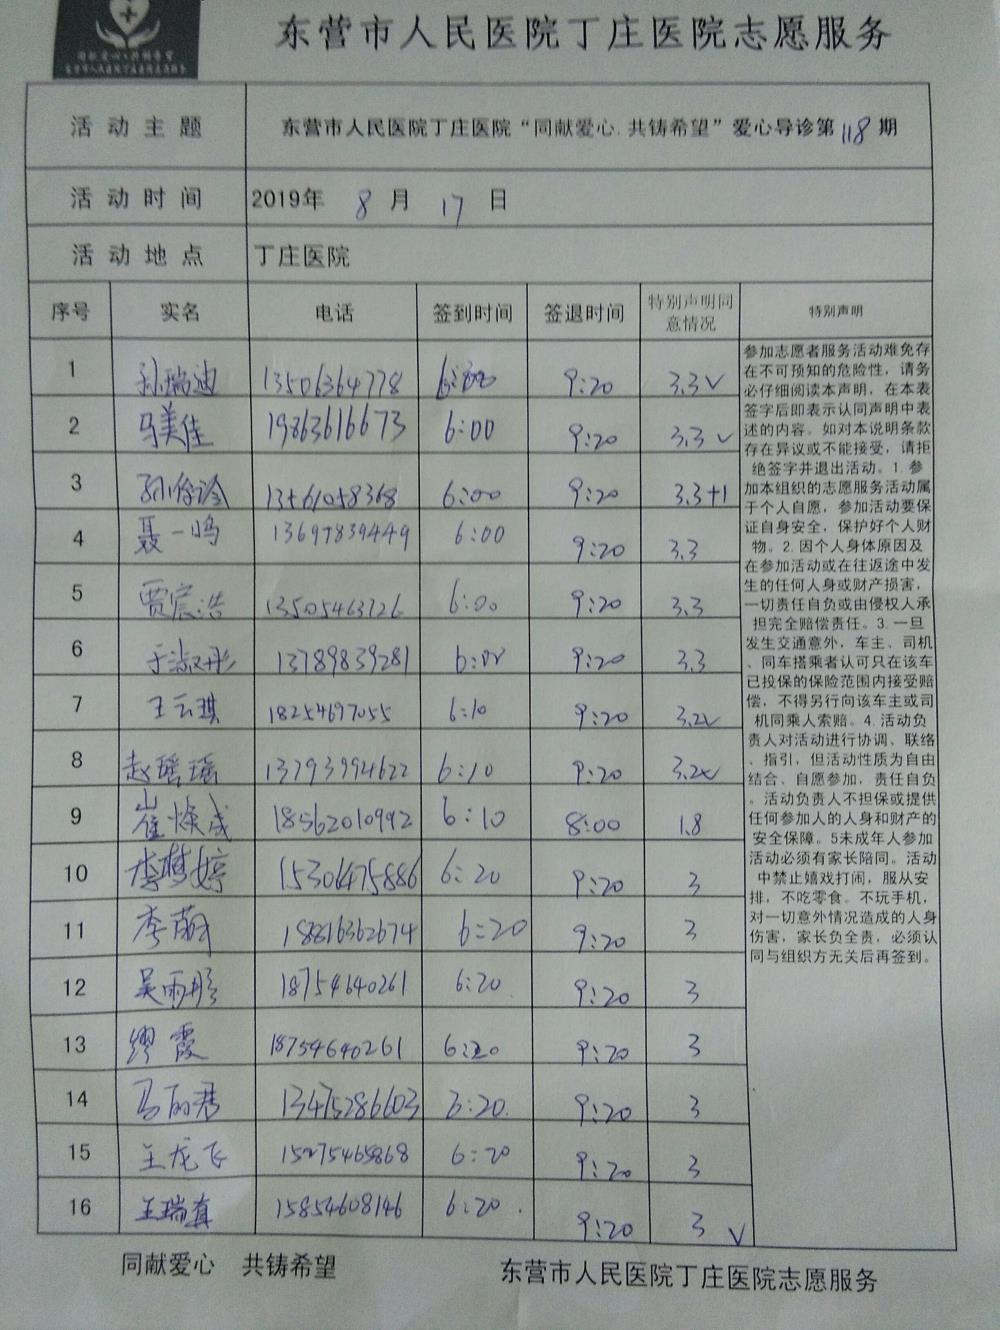 东营市人民医院丁庄医院志愿服务
活动主题 东营市人民医院丁庄医院“同献爱心.共铸希望”爱心导诊第118期
活动时间 2019年 8 月 17 日
活动地点 丁庄医院
序号 实名 电话 签到时间 签退时间 特别声明同意情况 特别声明
1 孙瑞迪 13506364778 6:00 9:20 3.3√
2 马美佳 19863616673 6:00 9:20 3.3√
3 13561058368 6:00 9:20 3.3+1
4 聂一鸣 13697839449 6:00 9:20 3.3
5 贾宸浩 13505463726 6:00 9:20 3.3
6 于淑彤 13789839281 6:00 9:20 3.3
7 王云琪 18254697055 6:10 9:20 3.2√
8 赵瑶瑶 13793994622 6:10 9:20 3.2
9 崔焕成 18562010992 6:10 8:00 1.8
10 李梦婷 15301475886 6:20 9:20 3
11 李萌 18816362674 6:20 9:20 3
12 吴雨彤 18754640261 6:20 9:20 3
13 缪霞 18754640261 6:20 9:20 3
14 马丽君 13475286603 6:20 9:20 3
15 王龙飞 15275465868 6:20 9:20 3
16 王瑞真 15854608146 6:20 9:20 3 √
参加志愿者服务活动难免存
在不可预知的危险性，请务
必仔细阅读本声明，在本表
签字后即表示认同声明中表
述的内容。如对本说明条款
存在异议或不能接受，请拒
绝签字并退出活动。1.参
加本组织的志愿服务活动属
于个人自愿，参加活动要保
证自身安全，保护好个人财
物。2.因个人身体原因及
在参加活动或在往返途中发
生的任何人身或财产损害，
一切责任自负或由侵权人承
担完全赔偿责任。3.一旦
发生交通意外，车主、司机
、同车搭乘者认可只在该车
已投保的保险范围内接受赔
偿，不得另行向该车主或司
机同乘人索赔。4.活动负
责人对活动进行协调、联络
、指引，但活动性质为自由
结合、自愿参加，责任自负
。活动负责人不担保或提供
任何参加人的人身和财产的
安全保障。5未成年人参加
活动必须有家长陪同。活动
中禁止嬉戏打闹，服从安
排，不吃零食。不玩手机，
对一切意外情况造成的人身
伤害，家长负全责，必须认
同与组织方无关后再签到。
同献爱心 共铸希望 东营市人民医院丁庄医院志愿服务